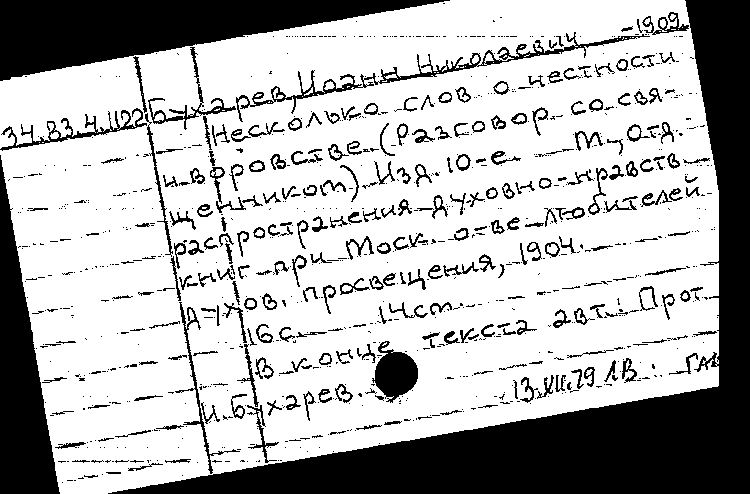 -1909.
34.83.4.1122 Бухарев, Иоанн Николаевич,
Несколько слов о честности
и воровстве (Разговор со свя-
щенником). Изд. 10-е. М., Отд.
распространения духовно-нравств.
книг при Моск. о-ве любителей
духов. просвещения, 1904.
16 с. 14 см.
В конце текста авт.: Прот.
И. Бухарев.
13.XII.79 ЛВ.